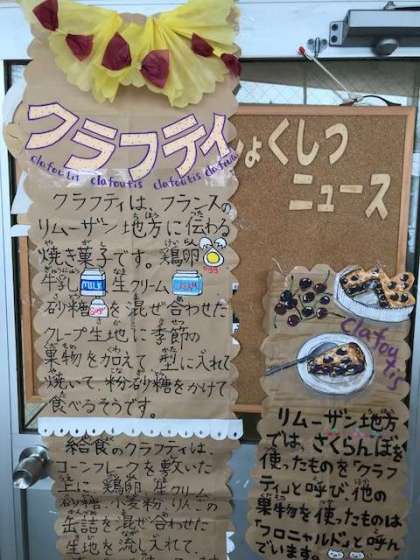 クラフティ
clafoutis clafoutis clafoutis clafoutis
クラフティは、フランスの
リムーザン地方に伝わる
焼き菓子です。鶏卵
牛乳 MILK 生クリーム CREAM
砂糖を混ぜ合わせた
クレープ生地に季節の
果物を加えて、型に入れて
焼いて、粉砂糖をかけて
食べるそうです。
給食のクラフティは、
コーンフレークを敷いた
上に、鶏卵、生クリーム、
砂糖、小麦粉、りんごの
缶詰を混ぜ合わせた
生地を流し入れて、
しょくしつ
ニュース
clafoutis
リムーザン地方
では、さくらんぼを
使ったものを「クラフ
ティ」と呼び、他の
果物を使ったものは
「フロニャルド」と呼ん
でいます。